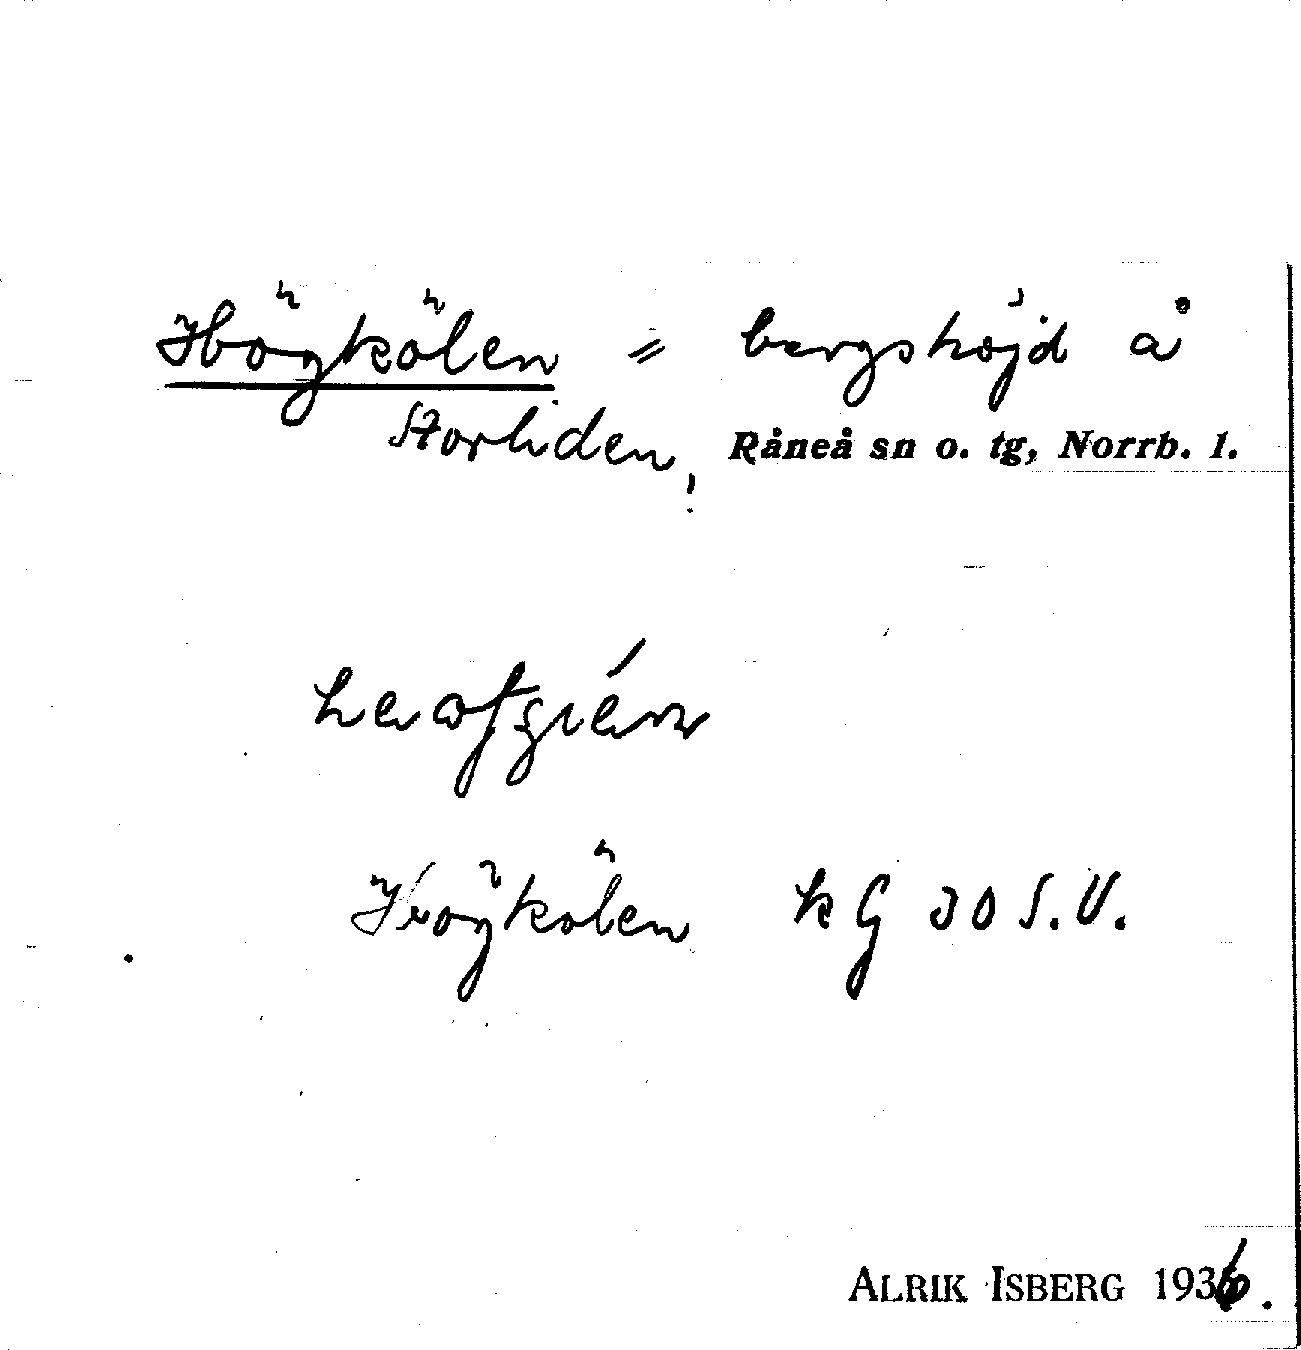 Högkölen = bergshöjd å
Storliden, Råneå sn o. tg, Norrb. l.
Högkölen kG 30 S.V.
ALRIK ISBERG 1936.